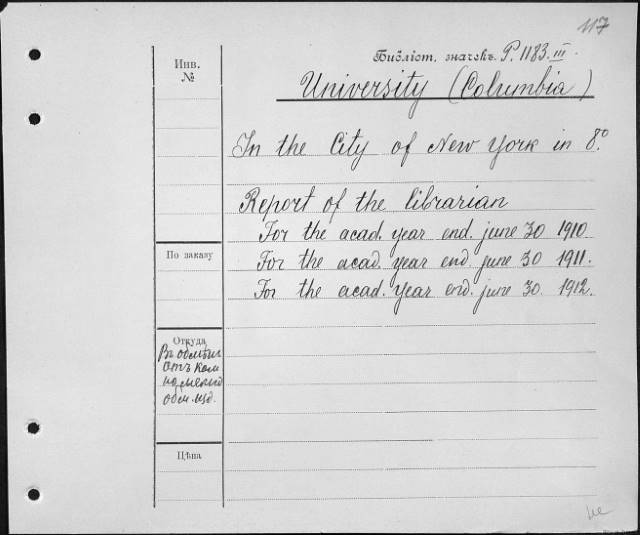 117
Библіот. значекъ P. 1183.III.
Инв.
№
University (Columbia)
In the City of New York in 8°.
Report of the librarian
For the acad. year end. june 30 1910.
For the acad. year end june 30 1911.
For the acad. year end. june 30. 1912.
По заказу
Откуда
Въ обмѣнъ
отъ Ком
обм. изд.
Цѣна